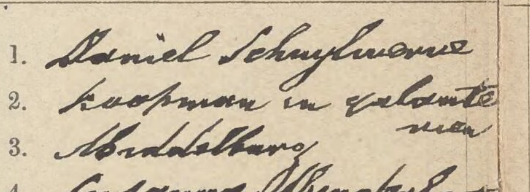 1. Daniel Schuylwerve
2. Koopman in galante
rien
3. Middelburg
4. Susanna